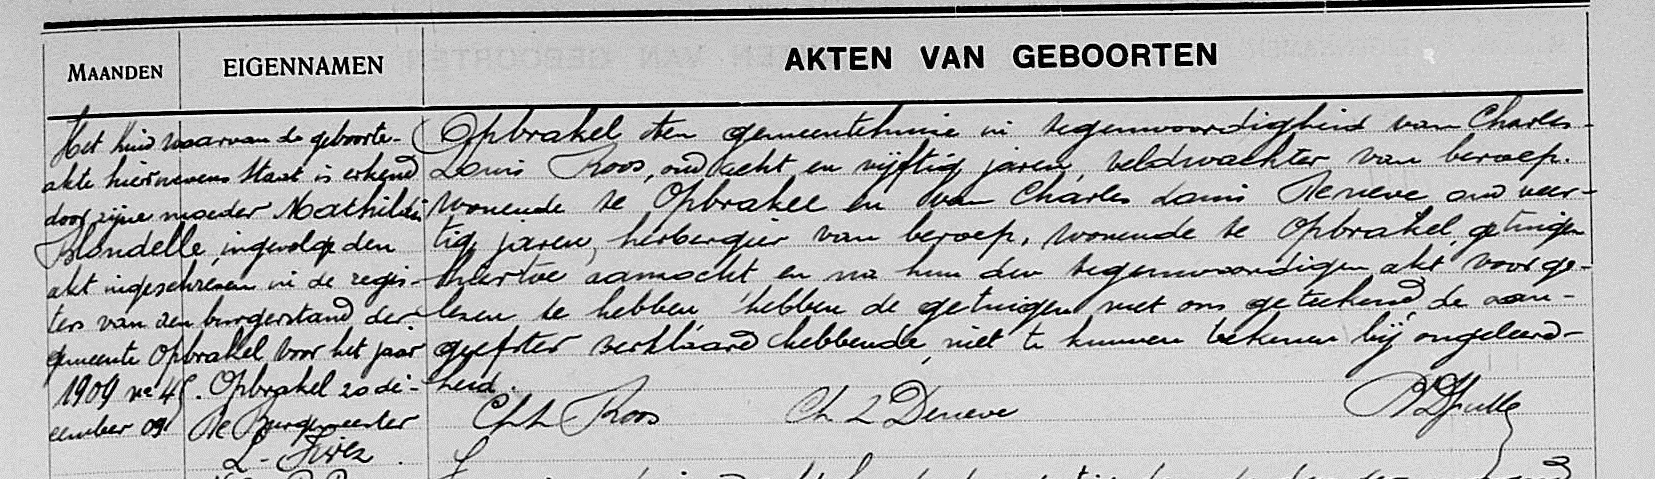 MAANDEN EIGENNAMEN AKTEN VAN GEBOORTEN
Het kind waarvan de geboorte-
akte hiernevens staat is erkend
door zijne moeder Mathilde
Blondelle, ingevolge den
akt ingeschreven in de regis-
ters van den burgerstand der
gemeente Opbrakel voor het jaar
1909 n° 45. Opbrakel 20 de-
cember 09
De Burgemeester
L.
Opbrakel ten gemeentehuize in tegenwoordigheid van Charles-
Louis Roos, oud acht en vijftig jaren, veldwachter van beroep.
wonende te Opbrakel en van Charles Louis Deneve oud veer-
tig jaren, herbergier van beroep, wonende te Opbrakel, getuigen
hiertoe aanzocht en na hun den tegenwoordigen akt voorge-
lezen te hebben hebben de getuigen met ons geteekend, de aan-
geefster verklaard hebbende niet te kunnen teekenen bij ongeleerd-
heid.
Ch L Roos Ch L Deneve